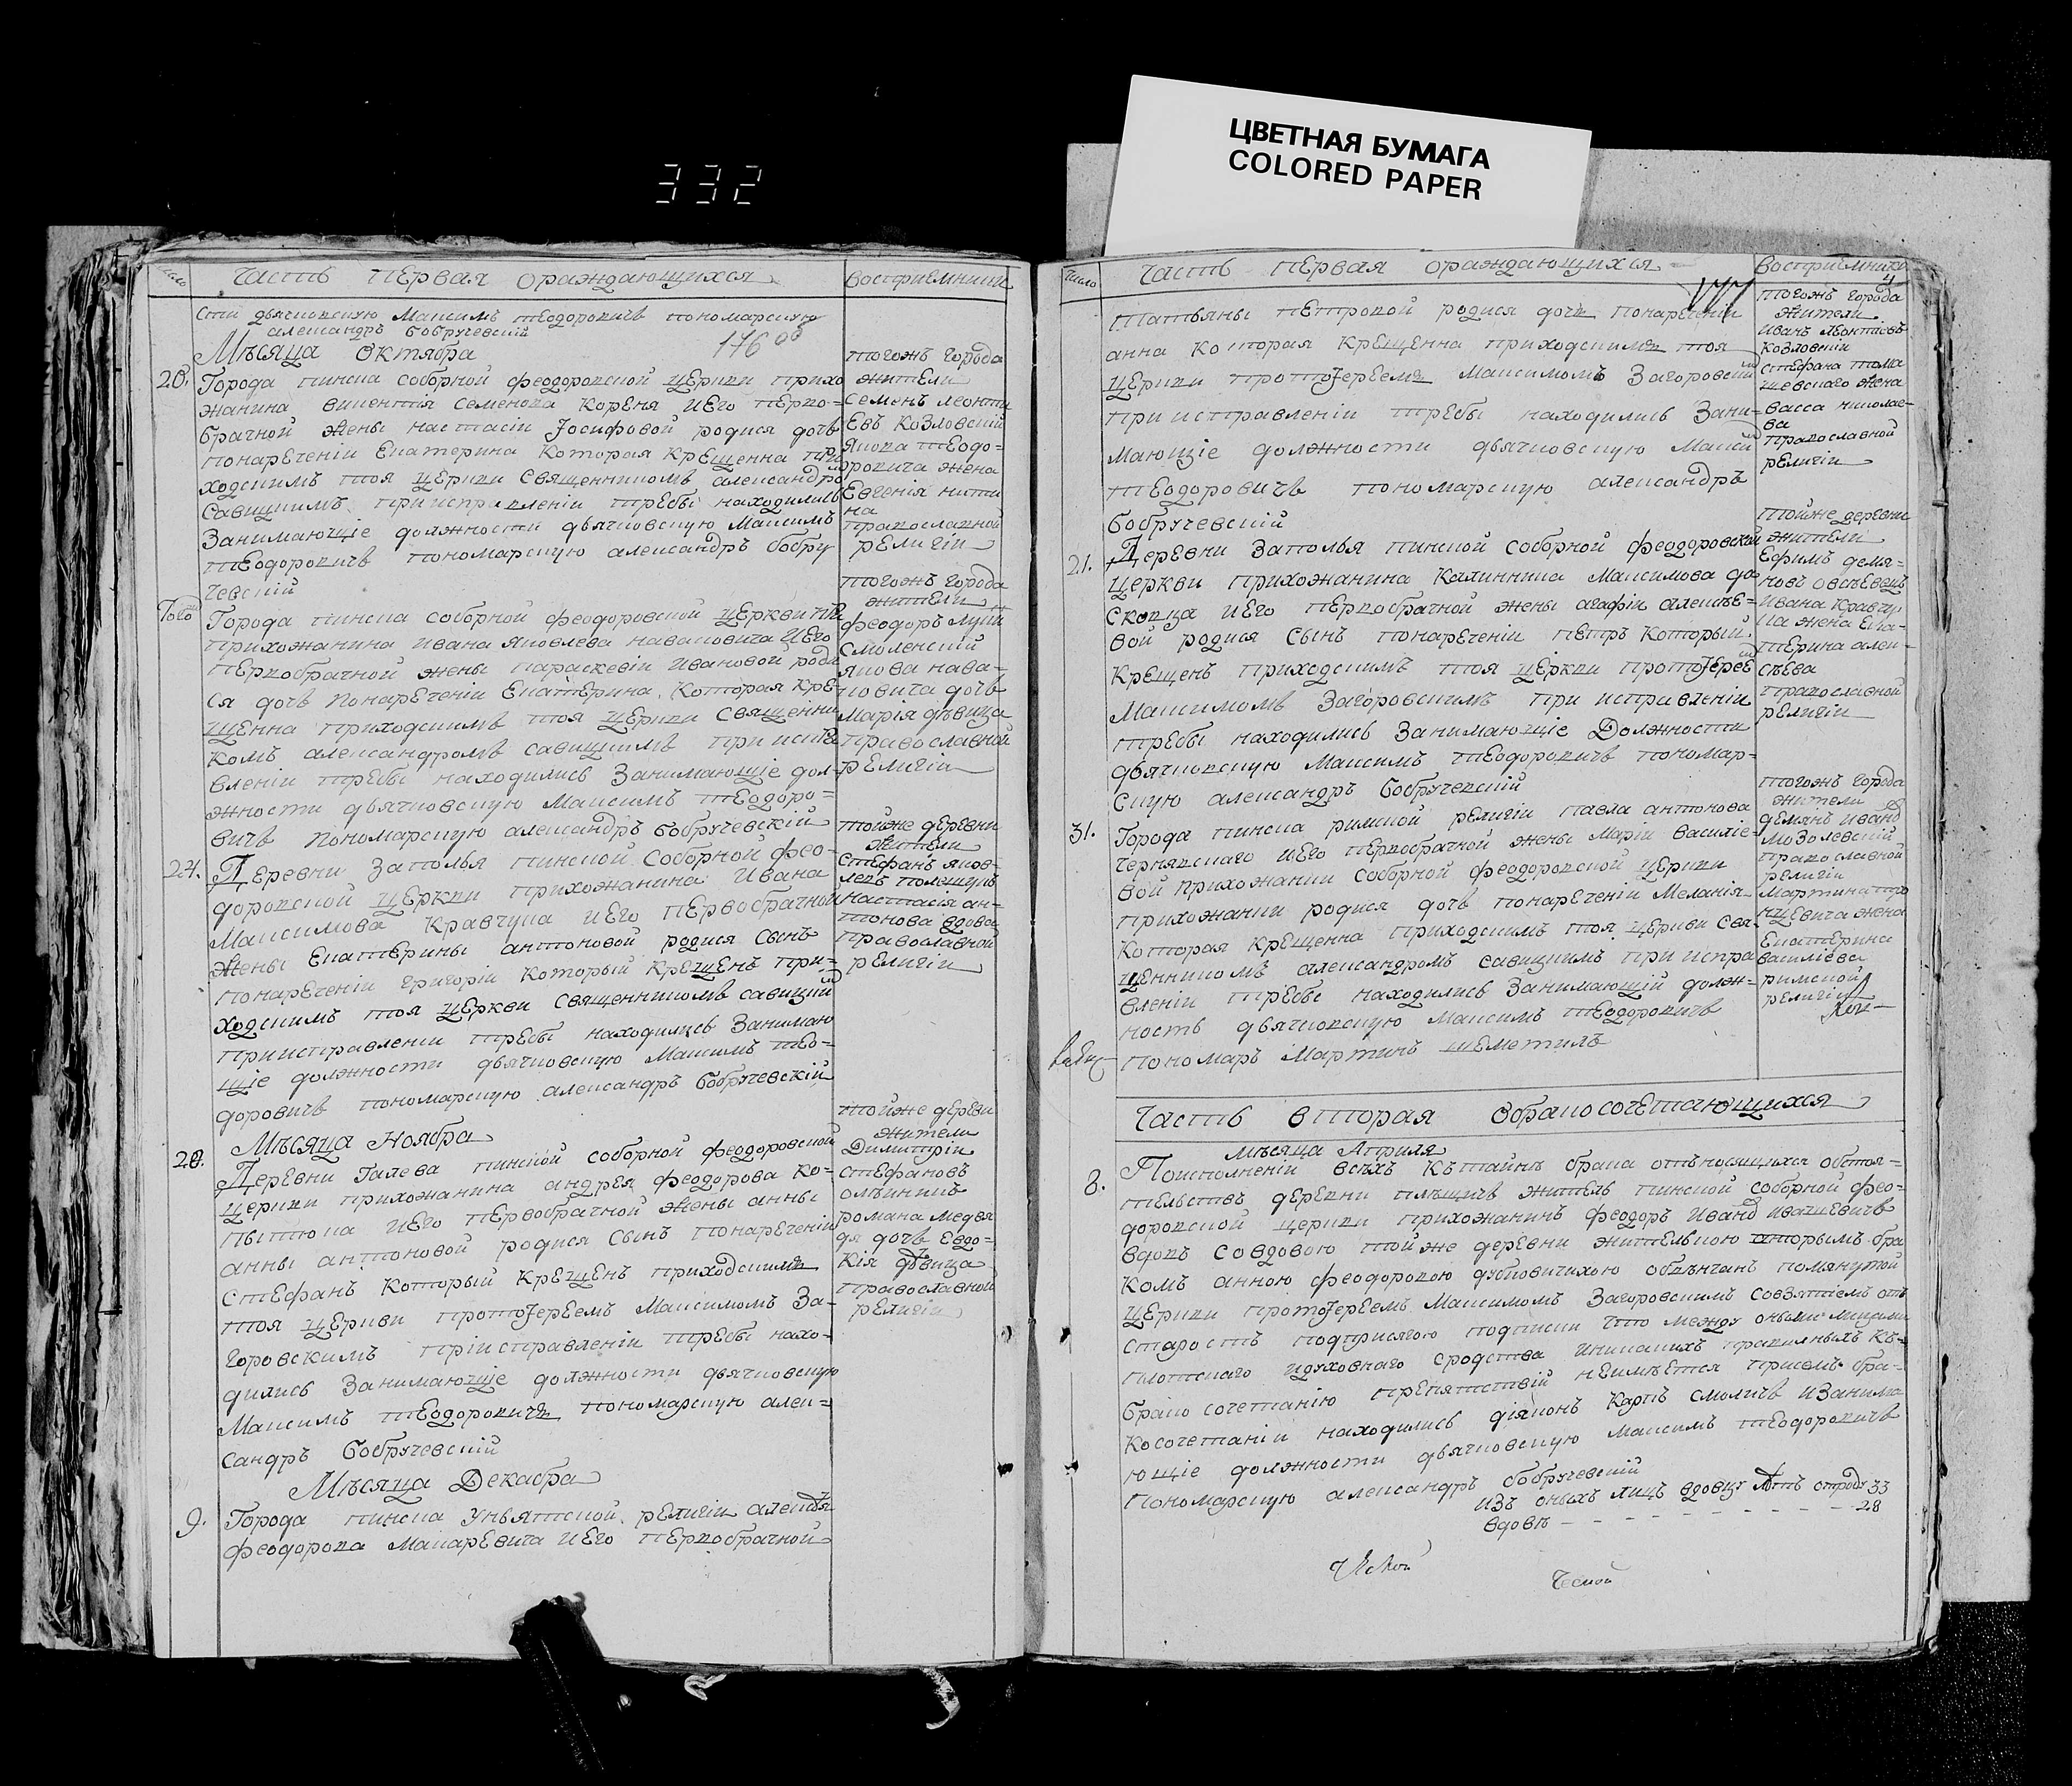 332
ЦВЕТНАЯ БУМАГА
COLORED PAPER
число
Часть первая ораждающихся
Восприемники
сти дьячковскую Максимъ Теодоровичъ пономарскую
александръ бобручевскій
Мѣсяца Октября
176 об
20.
Города пинска соборной феодоровской церкви прихо
жанина викентія Семенова Кореня иЕго перво=
брачной жены настасіи Іосифовой родися дочь
понареченіи Екатерина Которая Крещенна при
ходскимъ тоя церкви Священникомъ александро
Савицкимъ приисправленіи требы находились
Занимающіе должности дьячковскую Максимъ
теодоровичъ пономарскую александръ бобру
чевскій
тогожъ города
жители
Семенъ леонти
Евъ Козловскій
Якова теодо=
ровича жена
Евгенія ники
на
православной
религіи
Того
Города пинска соборной феодоровской церкви
прихожанина ивана Яковлева наваковича иЕго
первобрачной жены параскевіи Ивановой роди
ся дочь понареченіи Екатерина. Которая Кре
щенна приходскимъ тоя церкви священни
комъ александромъ савицкимъ при испра
вленіи требы находились Занимающіе дол=
жности дьячковскую Максимъ теодоро=
вичъ пономарскую александръ бобручевскій
тогожъ города
жители
феодоръ
Смоленскій
Якова нава=
ковича дочь
Марія дѣвица
православной
религіи
24.
Деревни Заполья пинской Соборной фео=
доровской церкви прихожанина Ивана
Максимова Кравчука иЕго первобрачной
жены Екатерины антоновой родися сынъ
понареченіи Григорій Который Крещенъ при=
ходскимъ тоя церкви священникомъ савицкий
приисправленіи требы находились Занимаю
щіе должности дьячковскую Максимъ тео=
доровичъ пономарскую александръ бобручевскій
тойже деревни
жители
Стефанъ яков=
левъ полещукъ
Настасія ан=
тонова вдова
православной
религіи
Мѣсяца Ноября
20.
Деревни Галева пинской соборной феодоровской
церкви прихожанина андрея феодорова Ко=
пытюка иЕго первобрачной жены анны
анны антоновой родися сынъ понареченіи
Стефанъ Который Крещенъ приходскимъ
тоя церкви протоІереемъ Максимомъ За=
горовскимъ приисправленіи требы нахо=
дились Занимающіе должности дьячковскую
Максимъ теодоровичъ пономарскую алек=
сандръ бобручевскій
тойже деревн
жители
Димитрій
Стефановъ
олѣнникъ
романа медвѣ
дя дочь Евдо=
кія дѣвица
православной
религіи
Мѣсяца Декабря
9.
Города пинска Уніятской религіи алексѣя
феодорова Макаревича иЕго первобрачной
число
Часть первая ораждающихся
Восприемники
Татьяны петровой родися дочь понареченіи
анна Которая Крещенна приходскимъ тоя
церкви протоІереемъ Максимомъ Загоровским
при исправленіи требы находились Зани=
мающіе должности дьячковскую Максим
теодоровичъ пономарскую александръ
бобручевскій
тогожъ города
жители
иванъ леонтіевъ
Козловскій
Стефана тома
шевскаго жена
васса николае=
ва
православной
религіи
21.
Деревни Заполья пинской соборной феодоровской
церкви прихожанина Калинника Максимова до
скоица иЕго первобрачной жены агафіи алексѣе=
вой родися сынъ понареченіи петръ Который
Крещенъ приходскимъ тоя церкви протоІерее
Максимомъ Загоровскимъ при исправленіи
требы находились Занимающіе Должности
дьячковскую Максимъ теодоровичъ пономар=
скую александръ бобручевскій
тойже деревни
жители
Ефимъ демя=
новъ овсѣевецъ
Ивана Кравчу=
ка жена Ека=
терина алек=
сѣева
православной
религіи
31.
Города пинска римской религіи павла антонова
Чернявскаго иЕго первобрачной жены Маріи Василіе=
вой прихожанки соборной феодоровской церкви
прихожанки родися дочь понареченіи Меланія
Которая Крещенна приходскимъ тоя церкви свя=
щенникомъ александромъ савицкимъ при испра
вленіи требы находились Занимающій долж=
ность дьячковскую Максимъ теодоровичъ
пономаръ Мартинъ шеметилъ
тогожъ города
жители
демянъ иванов
Мозолевскій
православной
религіи
Мартина
жена
Екатерина
василіева
римской
религіи
Часть вторая Обракосочетающихся
Мѣсяца Априля
8.
Поисполненіи всѣхъ Кътайнѣ брака относящихся обстоя=
тельствъ деревни плещичъ житель пинской соборной фео=
доровской церкви прихожанинъ феодоръ Иванов ивачевичъ
вдовъ совдовою тойже деревни жительною вторымъ бра
комъ анною феодоровою дубновичихою обвѣнчанъ помянутой
церкви протоІереемъ Максимомъ Загоровскимъ совзятіемъ отъ
старостъ подприсягою подписки что между оными лицами
плотскаго идуховнаго сродства иникакихъ правилныхъ Къ=
брако сочетанію препятствій неимѣется присемъ бра=
косочетаніи находились діяконъ Карпъ смоличъ иЗанима
ющіе должности дьячковскую максимъ теодоровичъ
пономарскую александръ бобручевскій
изъ оныхъ лицъ вдовцу лѣтъ отроду 33
вдовѣ - - - - - - - - - 28